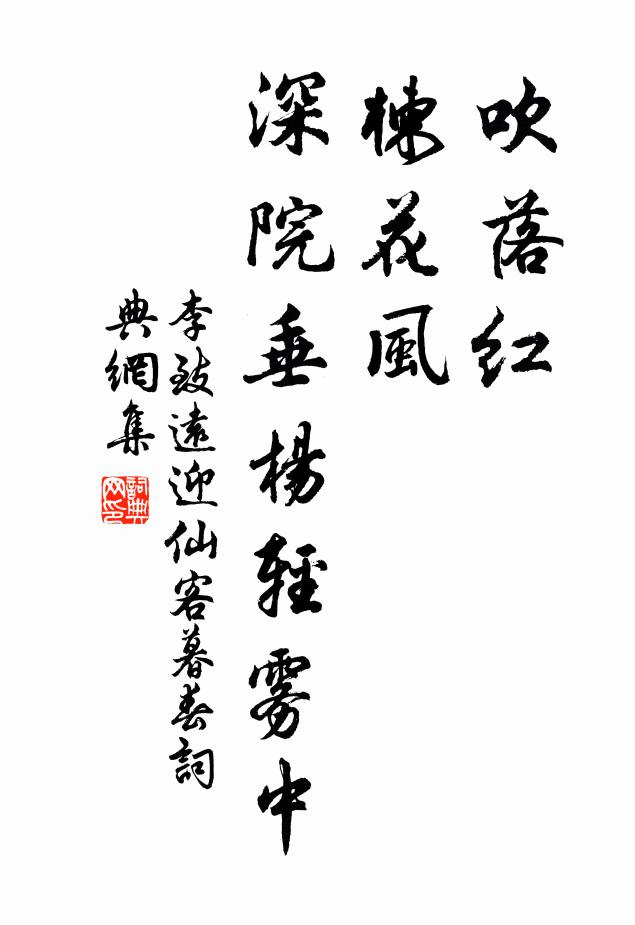 吹落紅
楝花風
深院垂楊輕霧中
李致遠迎仙客暮春詞
典網集
詞典
网印